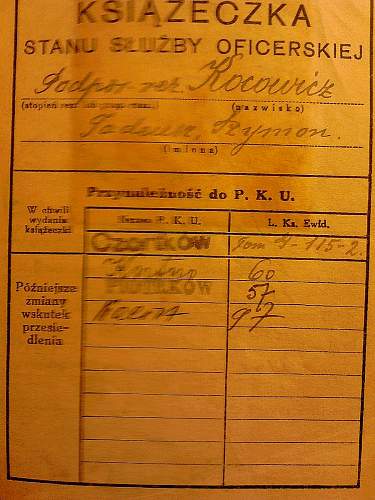 KSIĄŻECZKA
STANU SŁUŻBY OFICERSKIEJ
Podpor. rez. Kocowicz
(nazwisko)
Tadeusz, Szymon.
(imiona)
Przynależność do P. K. U.
W chwili wydania książeczki
Nazwa P. K. U. L. Ks. Ewid.
Czortków Tom I - 115 - 2.
Kutno 60
PIOTRKÓW 57
Kalisz 97
Późniejsze zmiany wskutek przesiedlenia